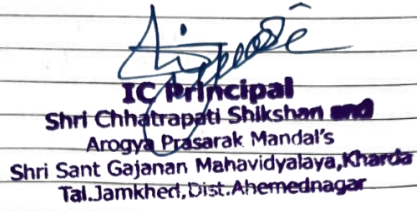 I/C Principal
Shri Chhatrapati Shikshan and
Arogya Prasarak Mandal's
Shri Sant Gajanan Mahavidyalaya,Kharda
Tal.Jamkhed,Dist.Ahemednagar